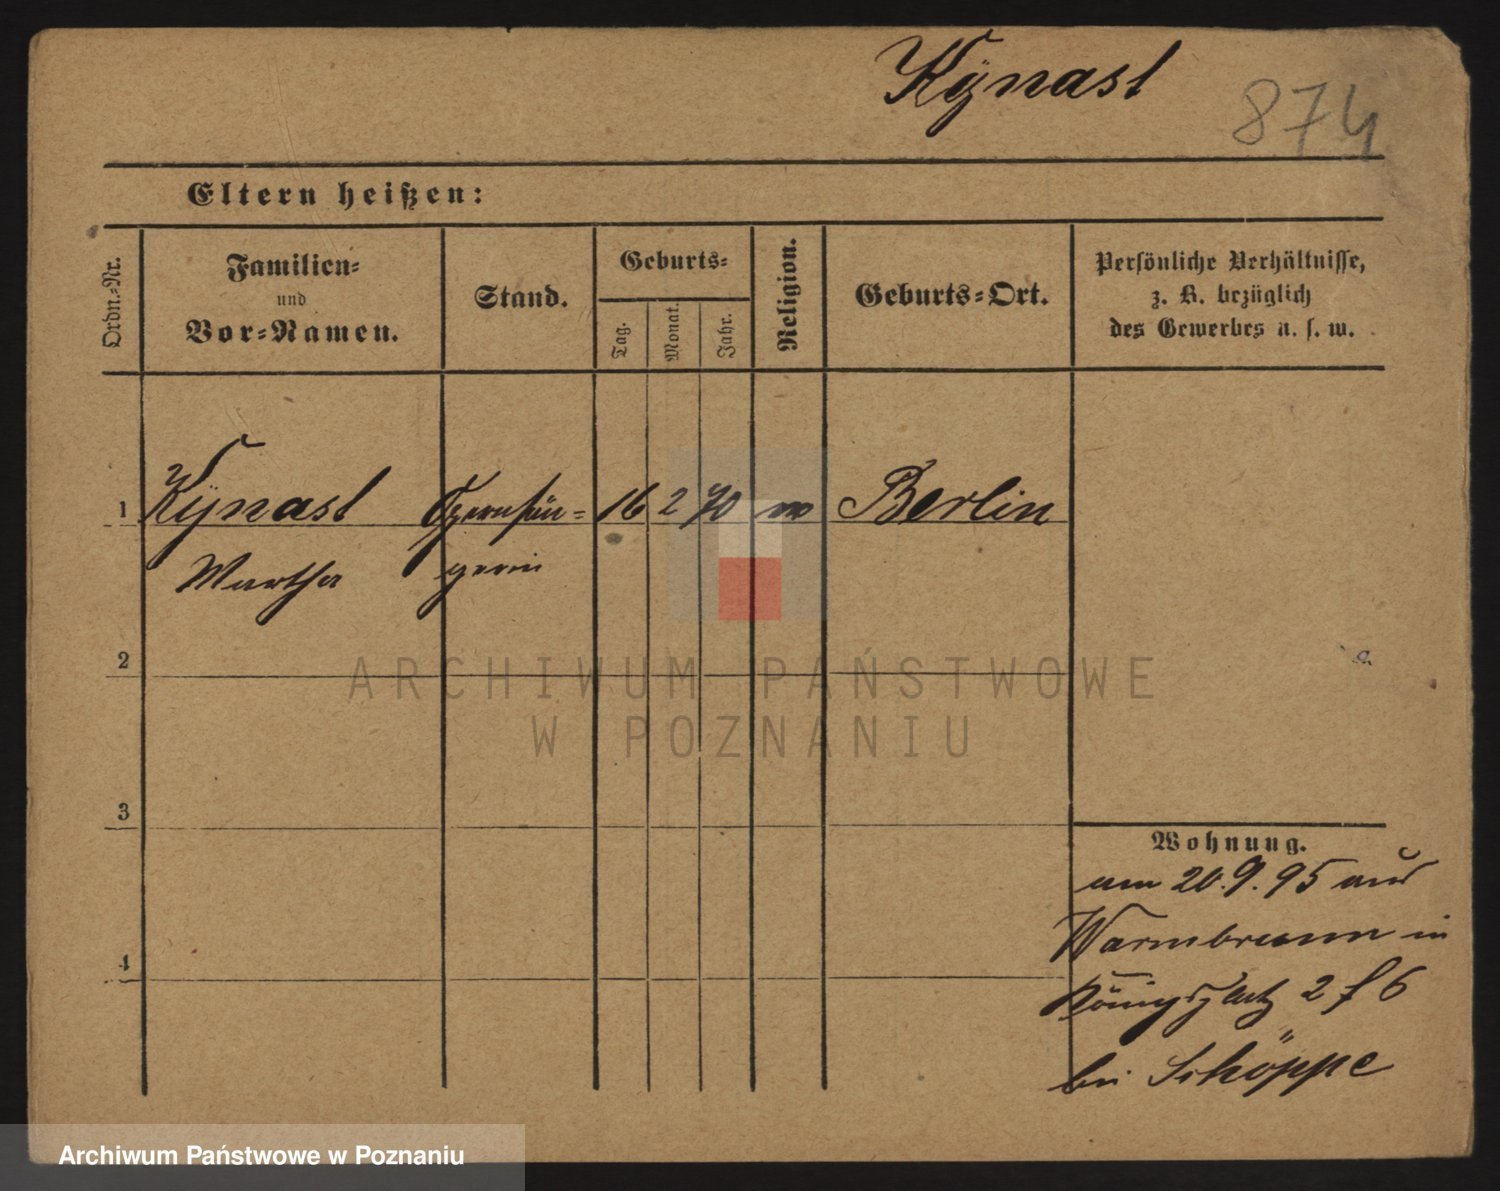 Kÿnast
874
Eltern heißen:
Ordn.-Nr.
Familien-
und
Vor-Namen.
Stand.
Geburts-
Tag.
Monat.
Jahr.
Religion.
Geburts-Ort.
Persönliche Verhältnisse,
z. B. bezüglich
des Gewerbes u. s. w.
1 Kÿnast Opernsän- 16 2 70 Berlin
Martha gerin
2
3
4
Wohnung.
am 20.9.95 aus
Warmbrunn in
Königsplatz 2 f 6
bei Schöppe
ARCHIWUM PAŃSTWOWE
W POZNANIU
Archiwum Państwowe w Poznaniu